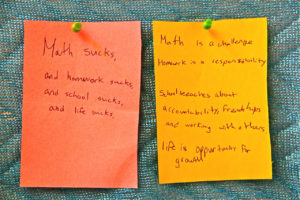 Math sucks,
and homework sucks,
and school sucks,
and life sucks.
Math is a challenge
Homework is a responsibility
School teaches about
accountability, friendships
and working with others
life is opportunity for
growth